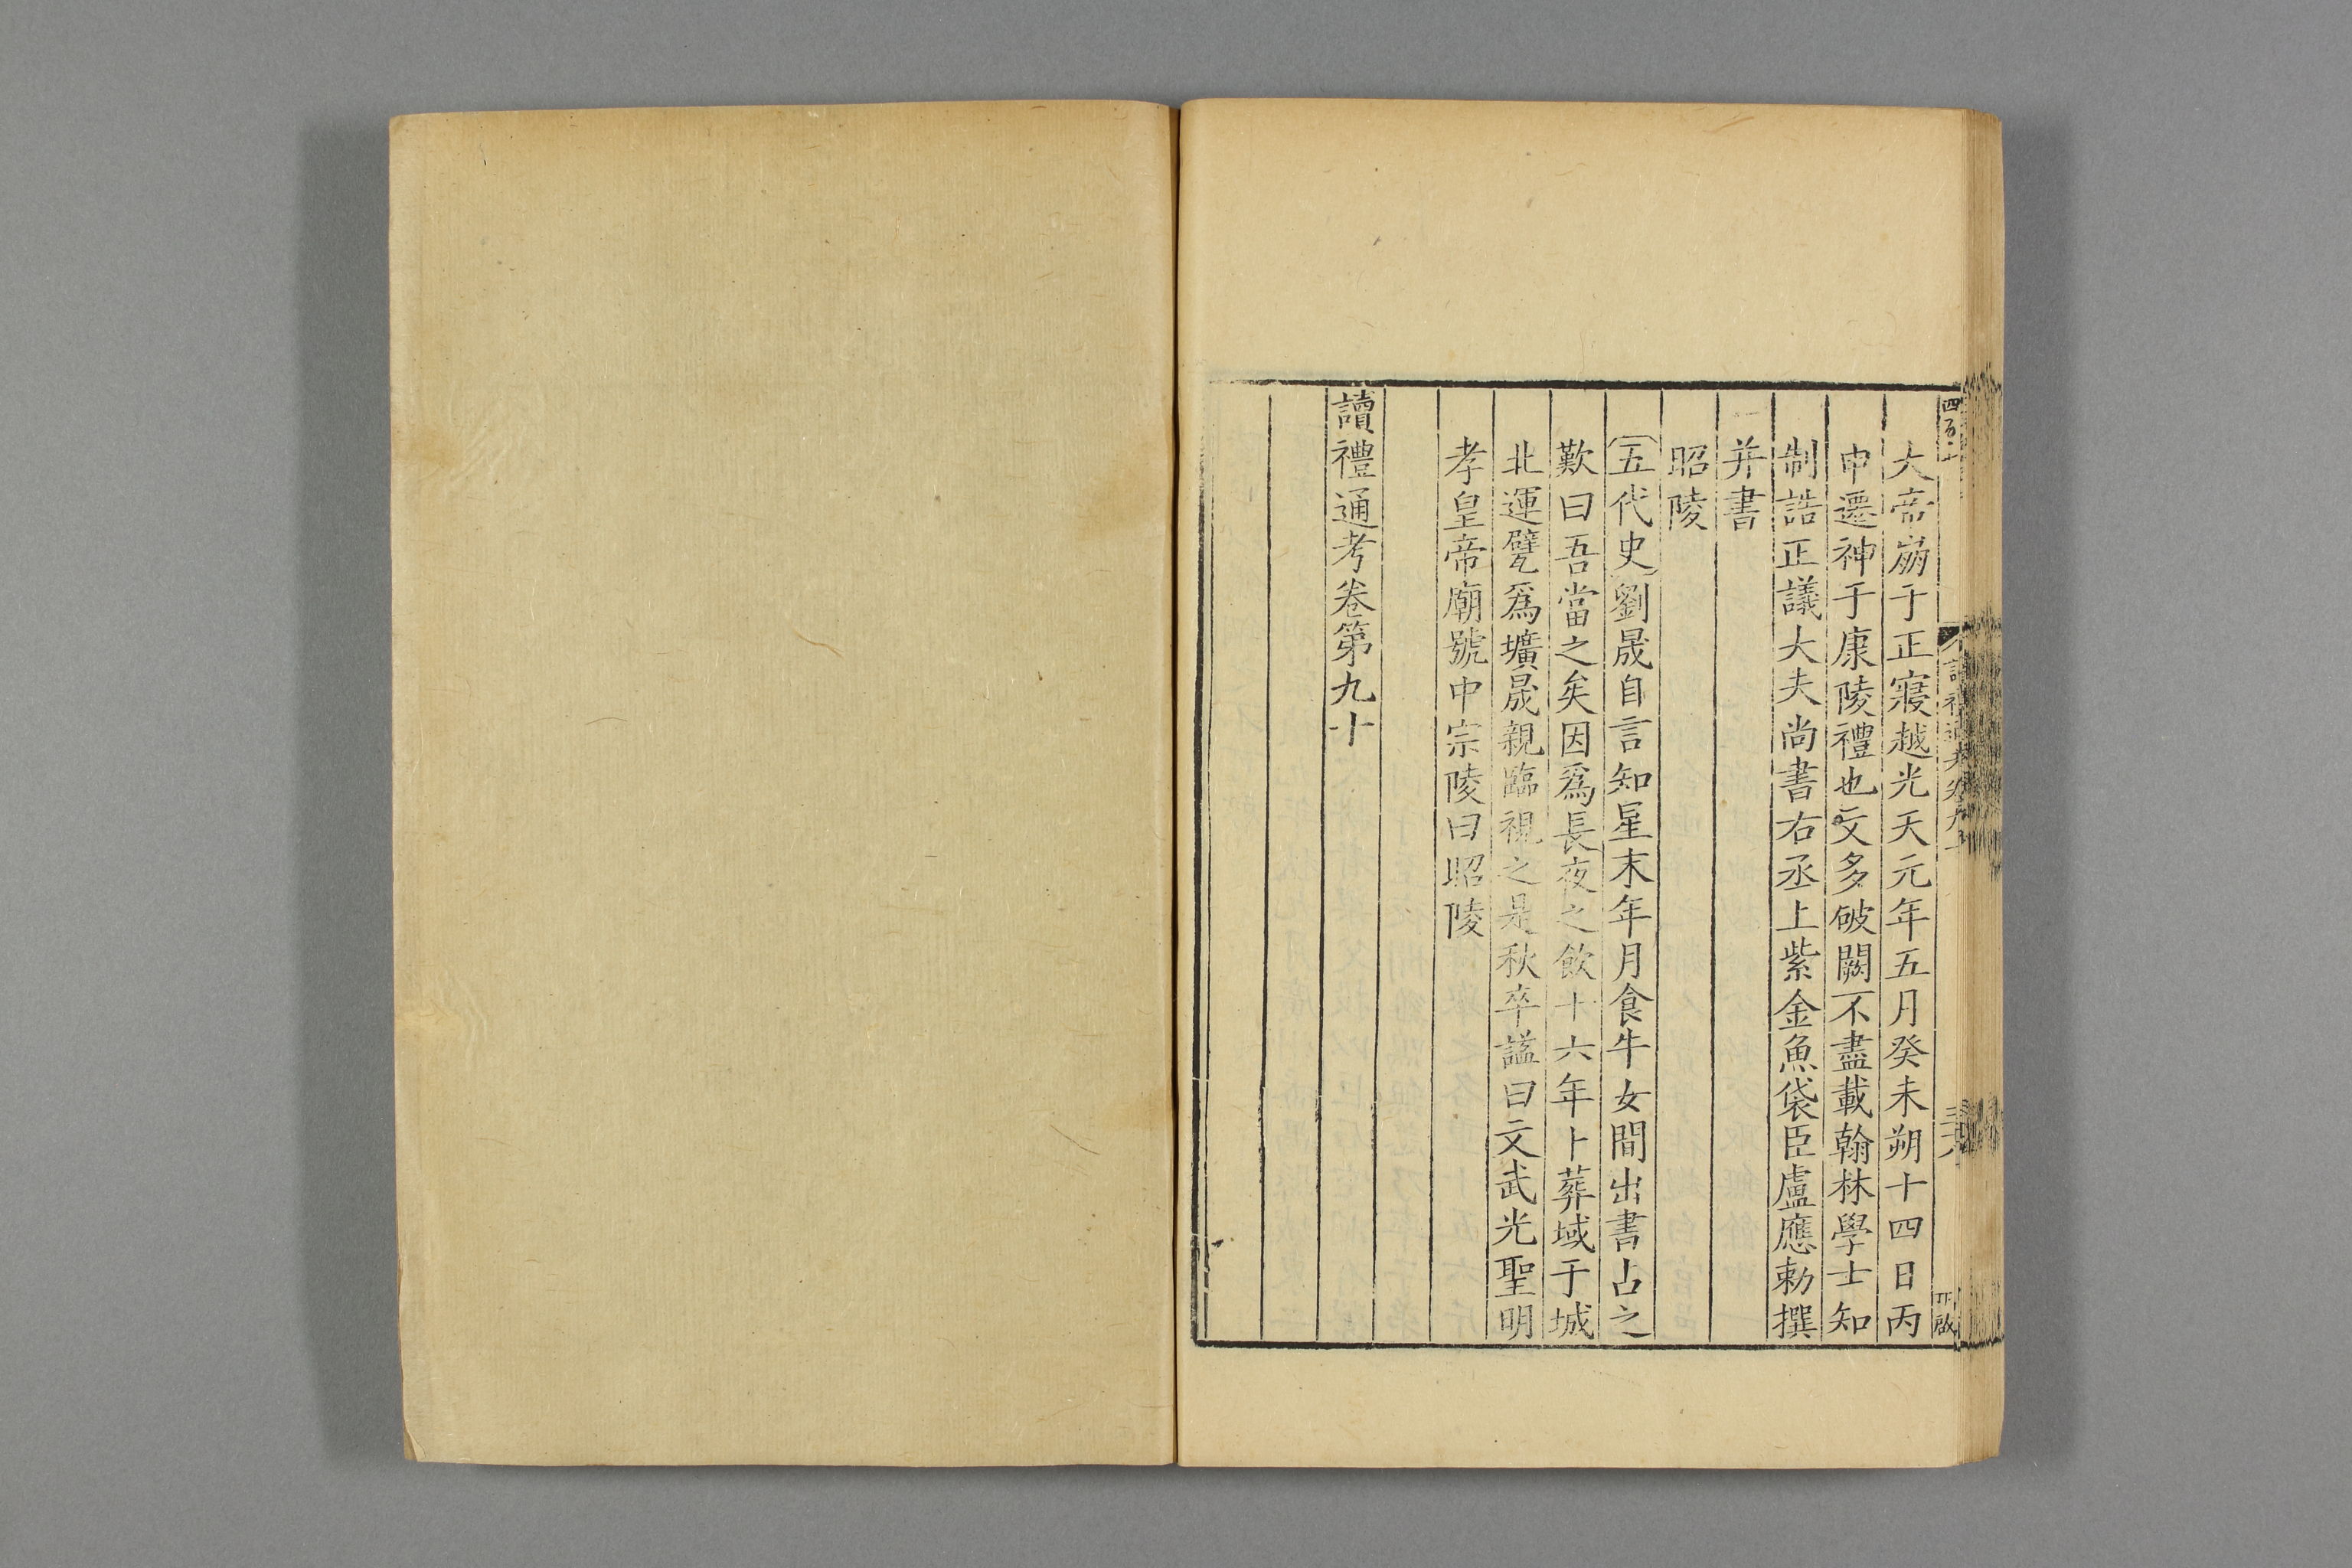 大帝崩于正寢越光天元年五月癸未朔十四日丙
申遷神于康陵禮也文多破闕不盡載翰林學士知
制誥正議大夫尚書右丞上紫金魚袋臣盧應勅撰
并書
昭陵
五代史劉晟自言知星末年月食牛女間出書占之
歎曰吾當之矣因爲長夜之飲十六年卜葬域于城
北運甓爲壙晟親臨視之是秋卒諡曰文武光聖明
孝皇帝廟號中宗陵曰昭陵
讀禮通考卷第九十